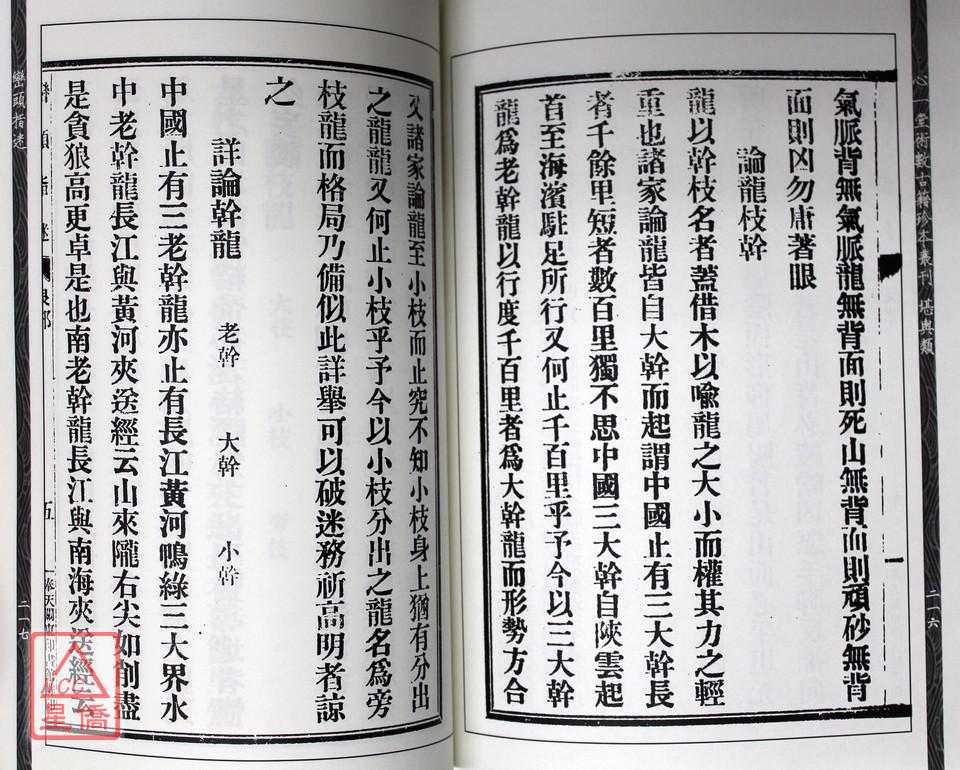 心一堂術數古籍珍本叢刊 堪輿類
二一六
氣脈背無氣脈龍無背面則死山無背面則頑砂無背
面則凶勿庸著眼
論龍枝幹
龍以幹枝名者蓋借木以喻龍之大小而權其力之輕
重也諸家論龍皆自大幹而起謂中國止有三大幹長
者千餘里短者數百里獨不思中國三大幹自陝雲起
首至海濱駐足所行又何止千百里乎予今以三大幹
龍為老幹龍以行度千百里者為大幹龍而形勢方合
又諸家論龍至小枝而止究不知小枝身上猶有分出
之龍龍又何止小枝乎予今以小枝分出之龍名為旁
枝龍而格局乃備似此詳舉可以破迷務祈高明者諒
之
詳論幹龍 老幹 大幹 小幹
中國止有三老幹龍亦止有長江黃河鴨綠三大界水
中老幹龍長江與黃河夾送經云山來隴右尖如削盡
是貪狼高更卓是也南老幹龍長江與南海夾送經云
五
巒頭指迷
二一七
ACC
星僑